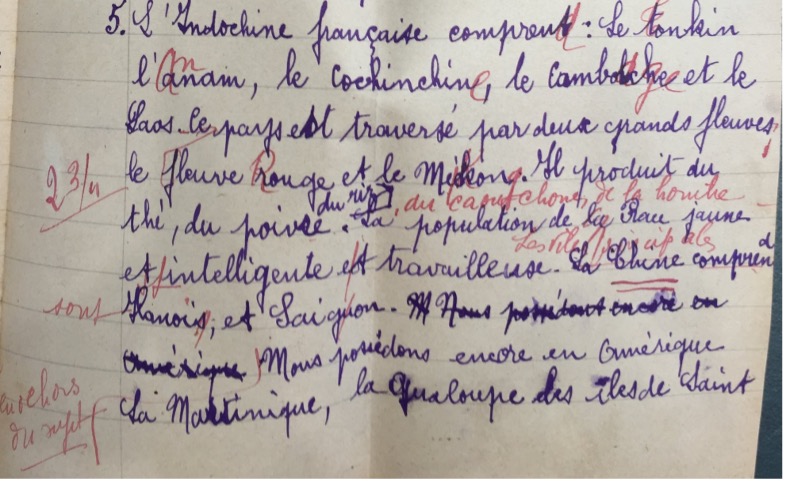 5. L'Indochine française comprend : Le Tonkin
l'Anam, le Cochinchine, le Cambodge et le
Laos. Ce pays est traversé par deux grands fleuves,
2 3/4
le fleuve Rouge et le Mékong. Il produit du
du riz, du caoutchouc, de la houille
thé, du poivre. La population de la Race jaune
Les villes principales
et intelligente et travailleuse. La Chine comprend
sont
Hanoïs, et Saiguon. Nous possédons encore en
Amérique Nous possédons encore en Amérique
en dehors
du sujet
La Martinique, la Gualoupe des îles de Saint